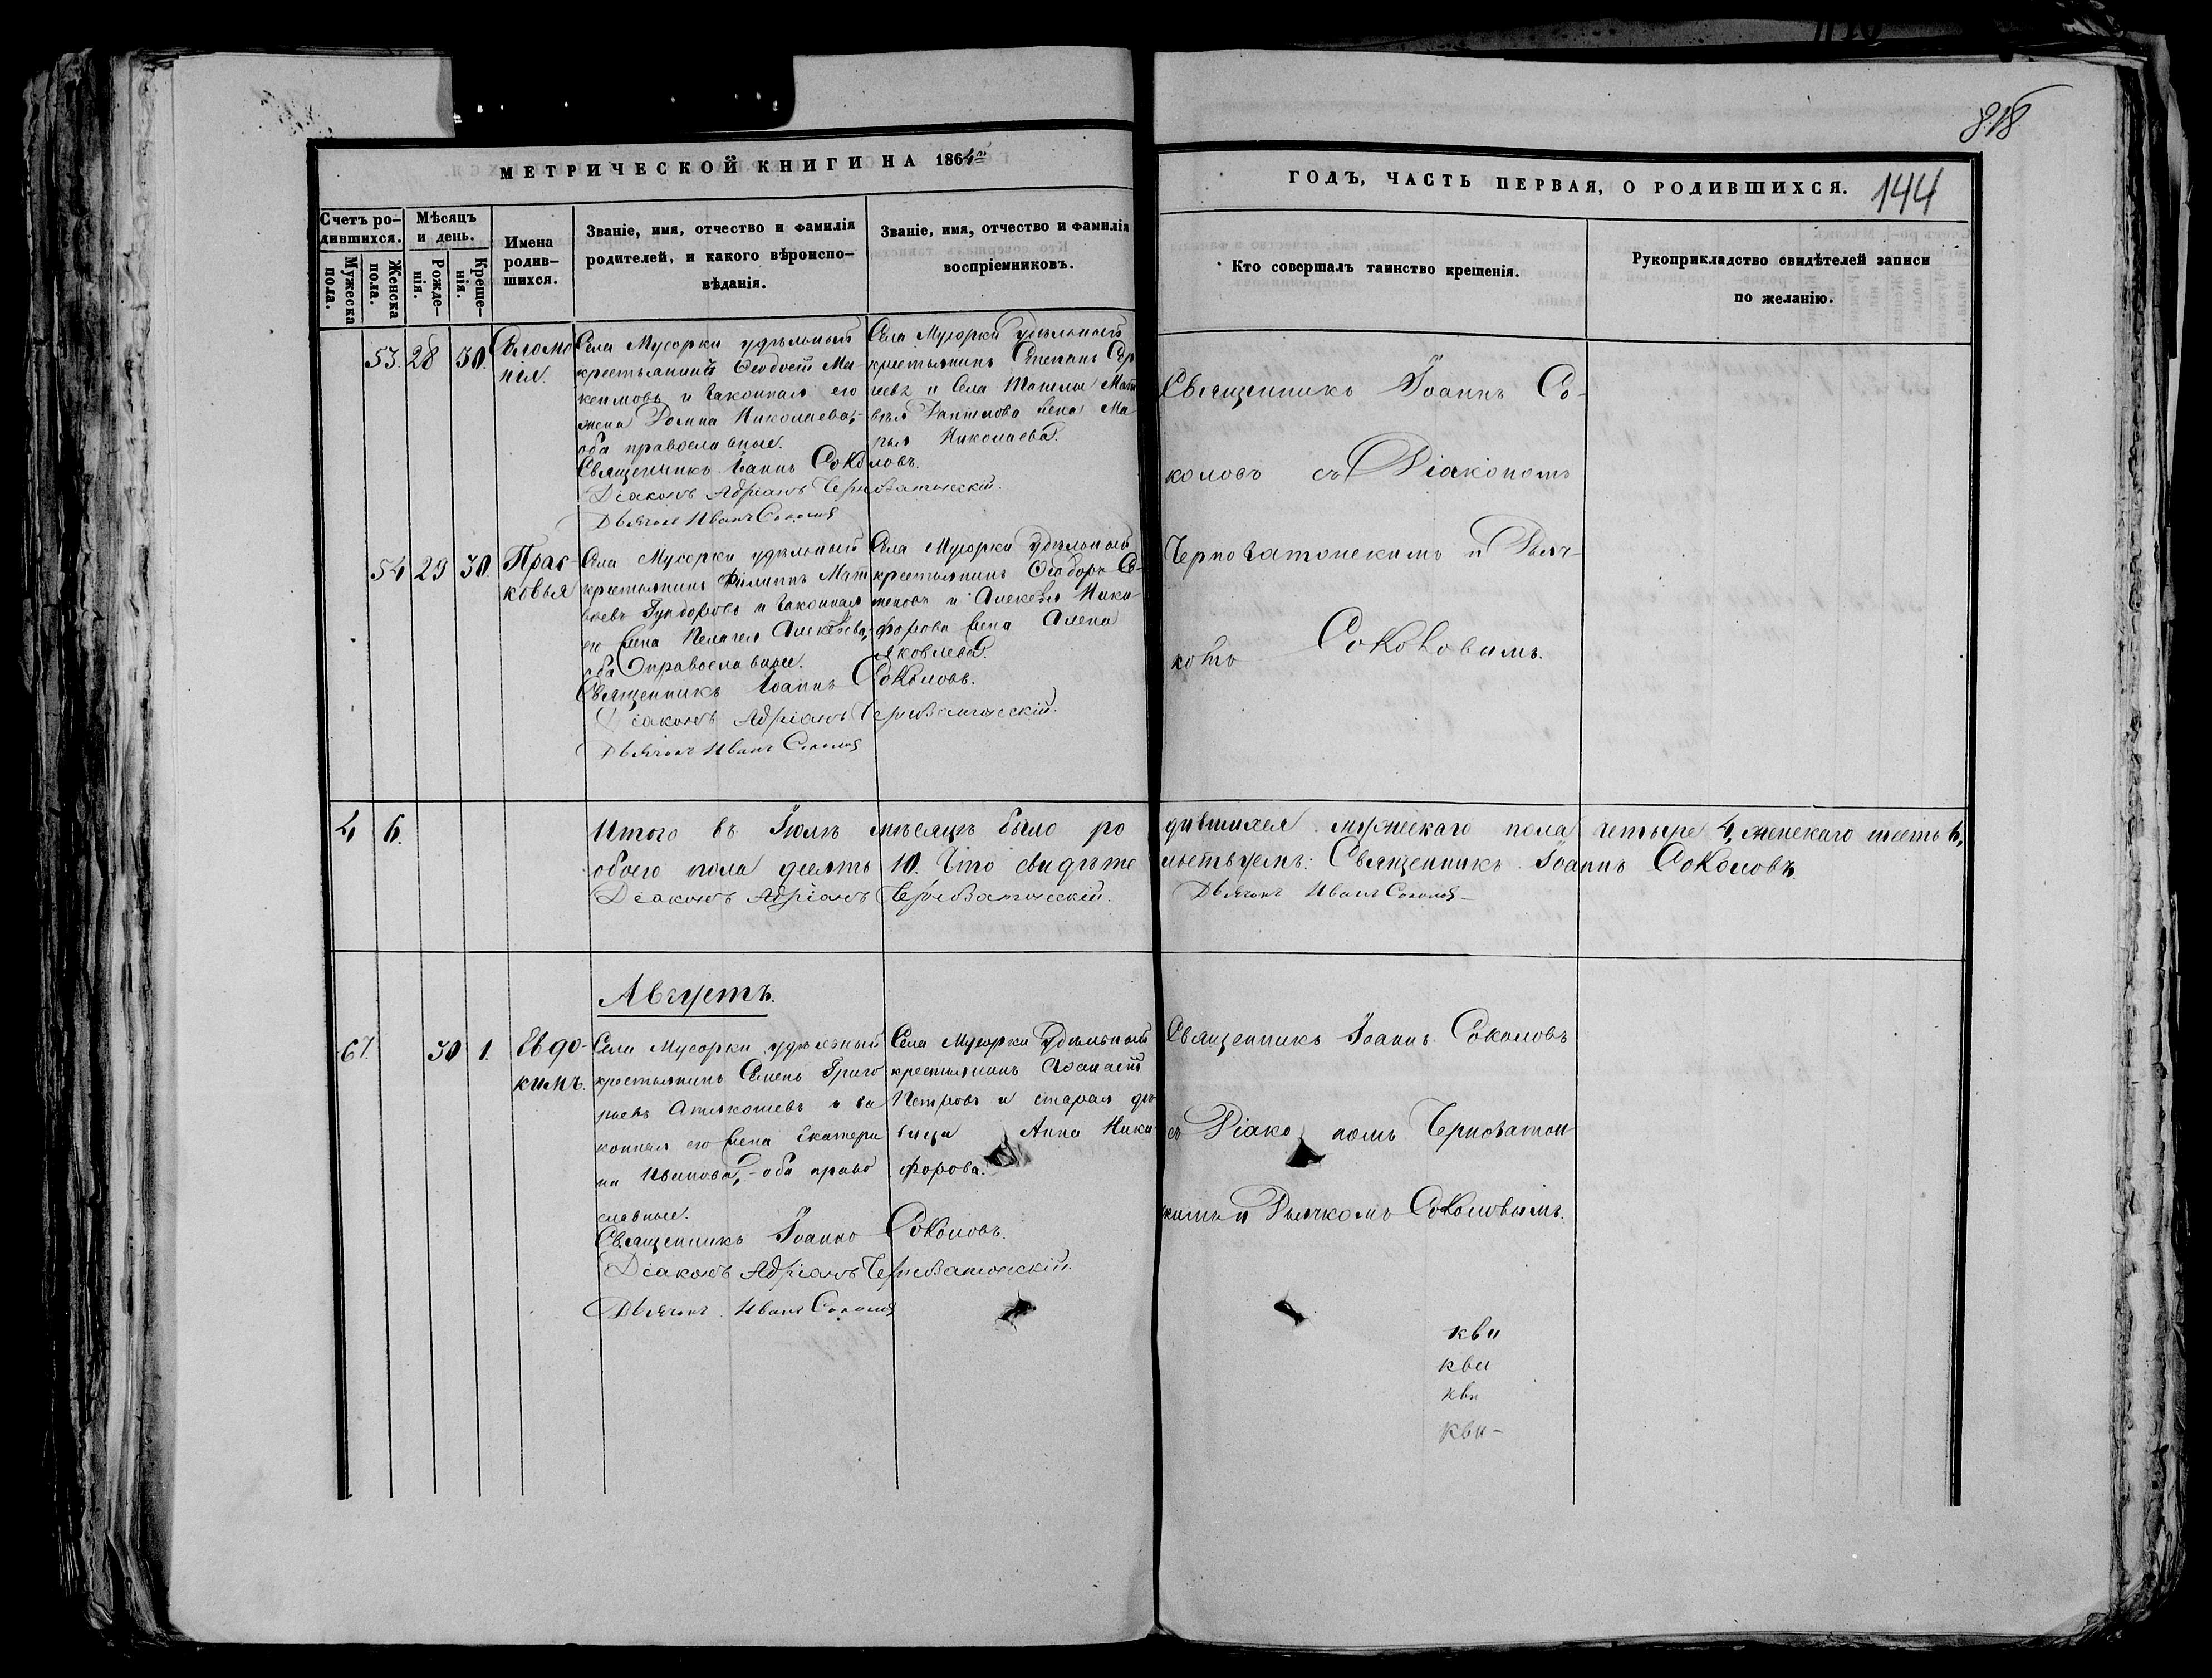 818
МЕТРИЧЕСКОЙ КНИГИ НА 1864й
ГОДЪ, ЧАСТЬ ПЕРВАЯ, О РОДИВШИХСЯ.
144
Счетъ ро-
дившихся.
Мужеска
пола.
Женска
пола.
Мѣсяцъ
и день.
Рожде-
нія.
Креще-
нія.
Имена
родив-
шихся.
Званіе, имя, отчество и фамилія
родителей, и какого вѣроиспо-
вѣданія.
Званіе, имя, отчество и фамилія
воспріемниковъ.
Кто совершалъ таинство крещенія.
Рукоприкладство свидѣтелей записи
по желанію.
53. 28 30.
Соломо
нія.
Села Мусорки удѣльный
крестьянинъ Ѳедосей Ма-
ксимовъ и законная его
жена Домна Николаева,-
оба православные.
Священникъ Іоаннъ Соколовъ.
Діаконъ Адріанъ Черноватонскій.
Дьячокъ Иванъ Соколов
Села Мусорки Удѣльный
крестьянинъ Степанъ Сер
геевъ и Села
Николаева.
Священникъ Іоаннъ Со-
коловъ съ Діакономъ
Черноватонскимъ и Дьяч-
комъ Соколовымъ.
54 29 30.
Прас-
ковья
Села Мусорки удѣльный
крестьянинъ Филиппъ Мат
вѣевъ и законная
его жена Пелагея Алексѣева,-
оба православные.
Священникъ Іоаннъ Соколовъ.
Діаконъ Адріанъ Черноватонскій.
Дьячокъ Иванъ Соколов
Села Мусорки Удѣльный
крестьянинъ Ѳедоръ Се-
меновъ и Алексѣя Ники
форова жена Алена
Яковлева.
4 6.
Итого въ Іюлѣ мѣсяцѣ было ро
дившихся мужескаго пола четыре 4, женскаго шесть 6,
обоего пола десять 10. Что свидѣте
льствуемъ: Священникъ Іоаннъ Соколовъ.
Діаконъ Адріанъ Черноватонскій.
Дьячокъ Иванъ Соколов
Августъ.
67. 30 1.
Евдо-
кимъ.
Села Мусорки удѣльный
крестьянинъ Семенъ Григо
рьевъ и за
конная его жена Екатери
на Иванова,- оба право
славные.
Священникъ Іоаннъ Соколовъ.
Діаконъ Адріанъ Черноватонскій.
Дьячокъ Иванъ Соколов
Села Мусорки Удѣльный
крестьянинъ Аѳанасій
Петровъ и старая дѣ
вица Анна Ники
форова.
Священникъ Іоаннъ Соколовъ
съ Діакономъ Черноватон
скимъ и Дьячкомъ Соколовымъ.
кви
кви
кви
кви-